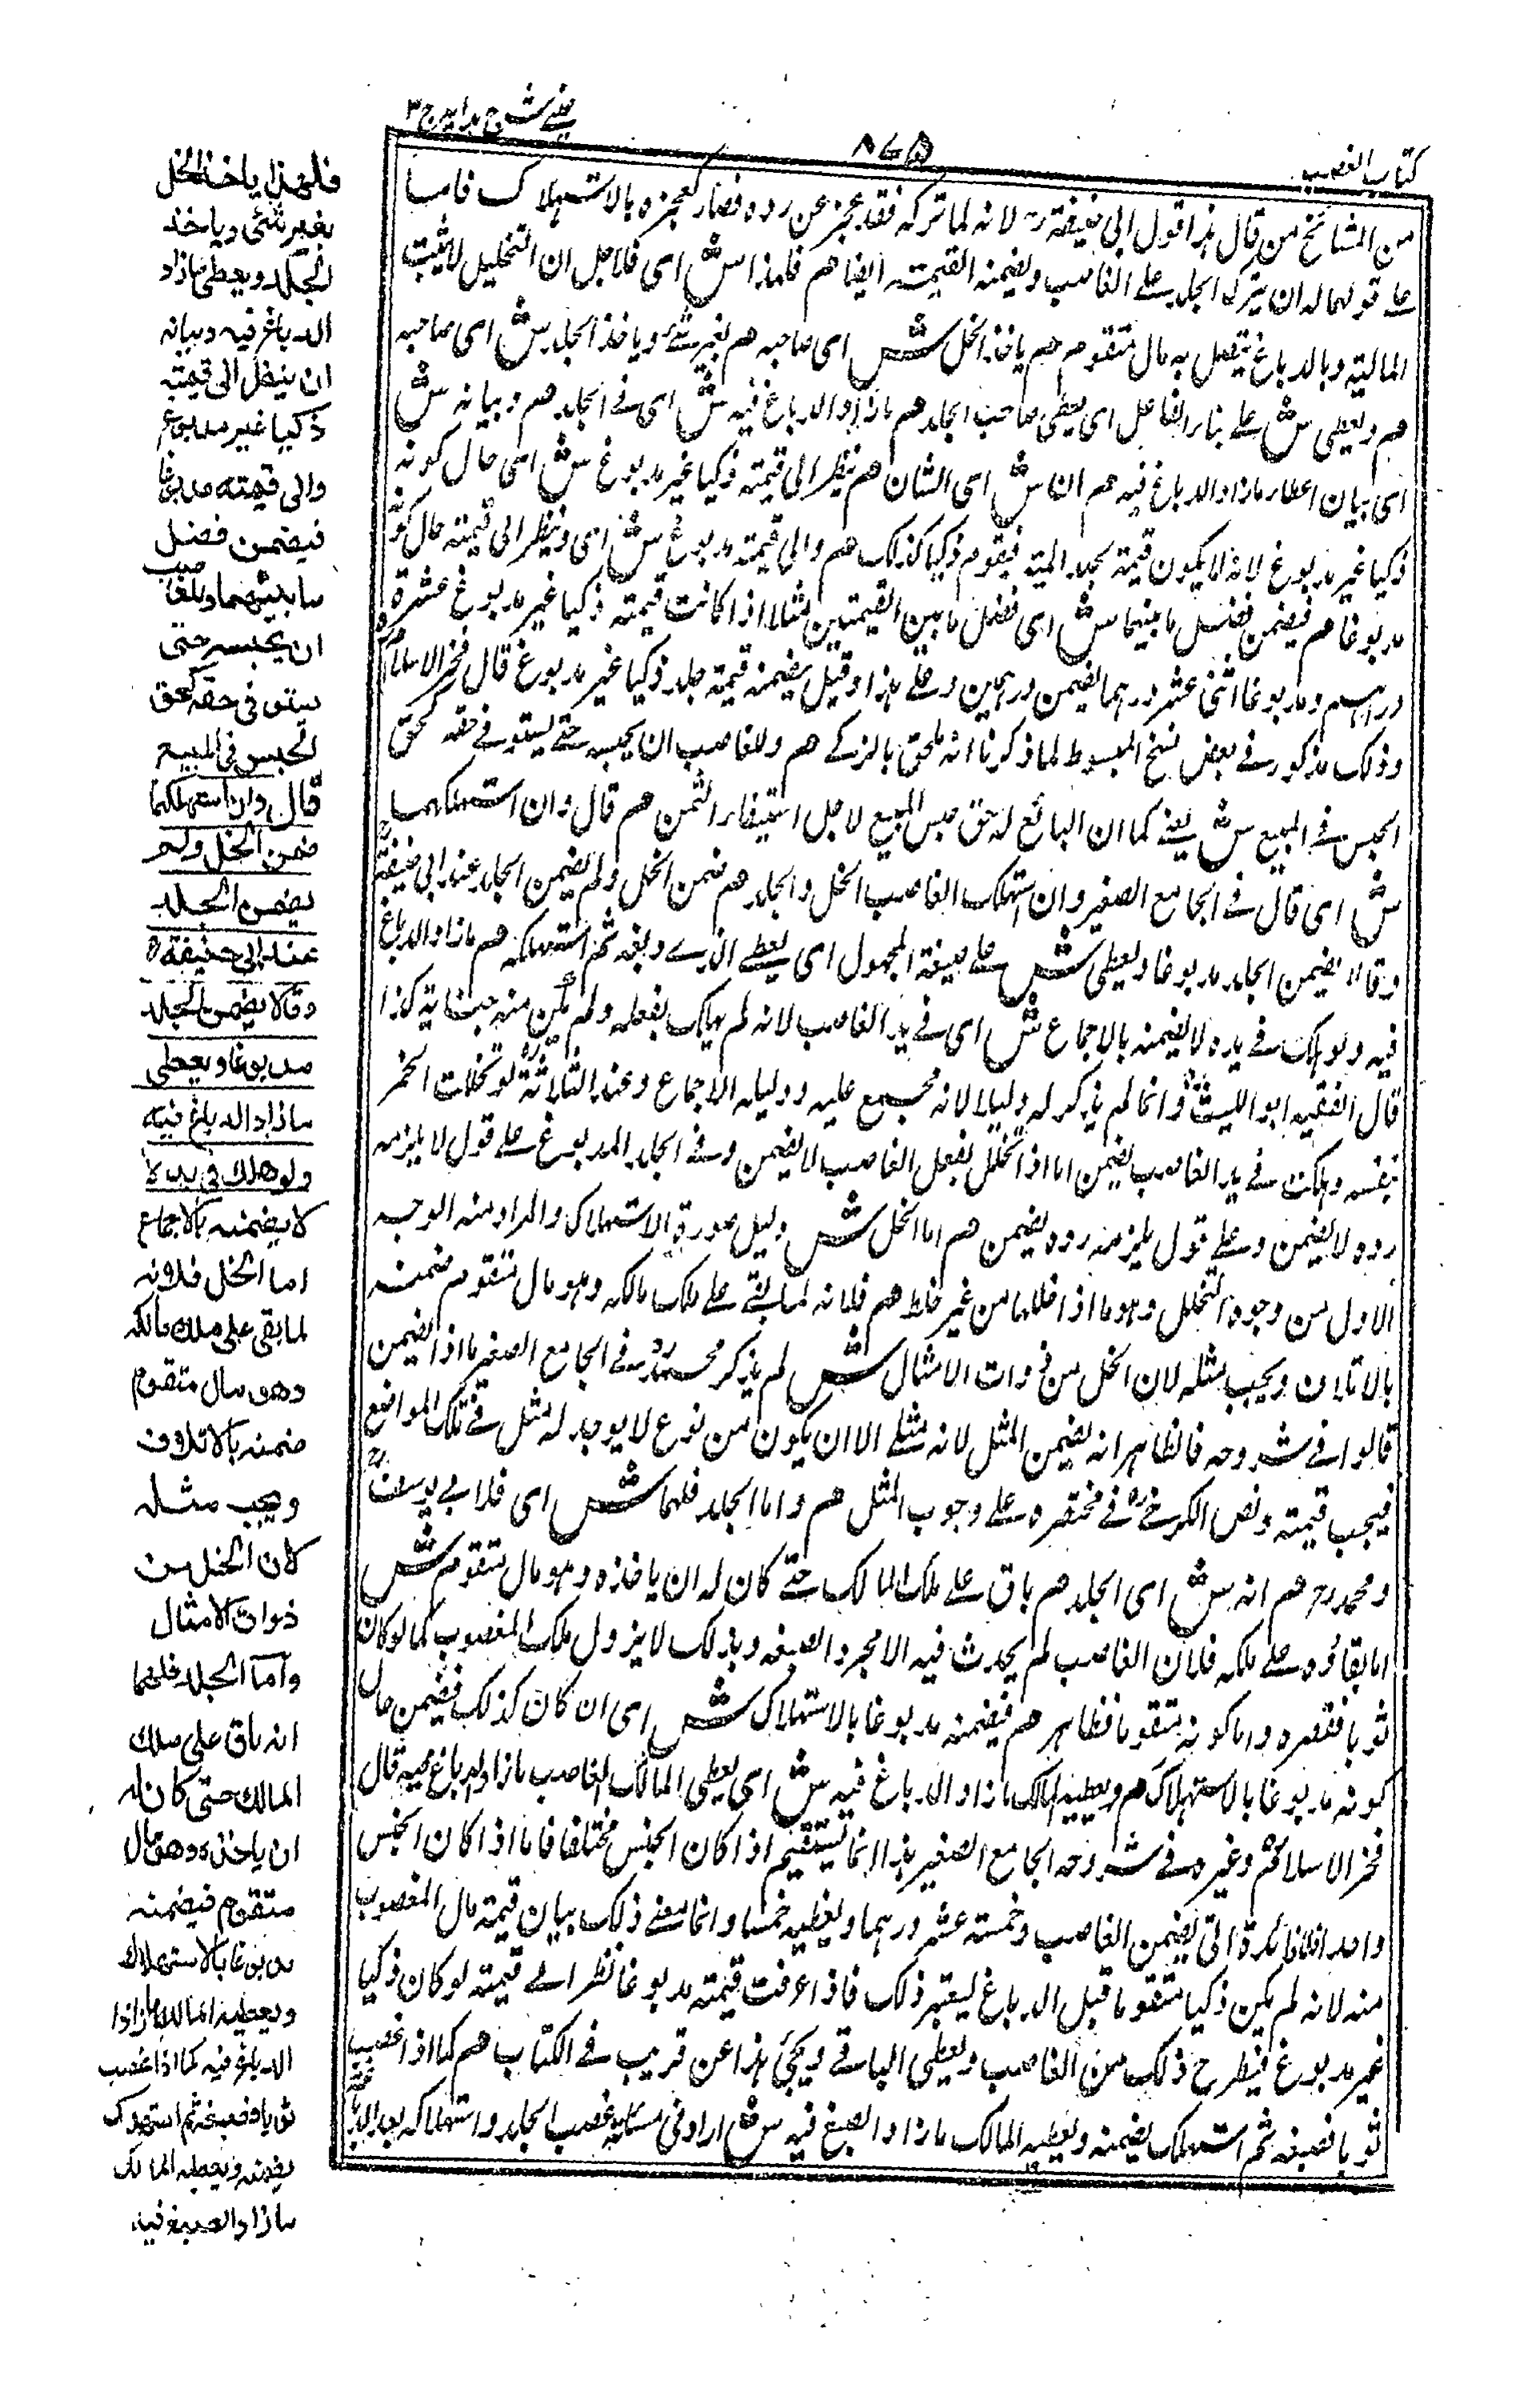 كتاب الغصب
٨٤٥
عيني شرح هدايه ج ٣
من المشائخ من قال هذا قول ابي حنيفة رح لانه لما تركه فقد عجز عن رده فصار كعجزه بالاستهلاك فاما
على قولهما له ان يترك الجلد على الغاصب ويضمنه القيمة ايضا هم فلهذا ش اى فلاجل ان التخليل لاثبات
المالية وبالدباغ يتصل به مال متقوم هم ياخذ الخل ش اى صاحبه هم بغير شئ وياخذ الجلد ش اى صاحبه
هم ويعطى ش على بناء الفاعل اى يعطى صاحب الجلد هم ما زاد الدباغ فيه ش اى فى الجلد هم وبيانه ش
اى بيان اعطاء ما زاد الدباغ فيه هم ان ش اى الشان هم ينظر الى قيمته ذكيا غير مدبوغ ش اى حال كونه
ذكيا غير مدبوغ لانه لا يكون قيمة لجلد الميتة فيقوم ذكيا كذلك هم والى قيمته مدبوغ ش اى وينظر الى قيمته حال كونه
مدبوغا هم فيضمن فضل ما بينهما ش اى فضل ما بين القيمتين مثلا اذا كانت قيمته ذكيا غير مدبوغ عشرة
دراهم ومدبوغا اثنى عشر درهما يضمن درهمين وعلى هذا وقيل يضمنه قيمة جلد ذكيا غير مدبوغ قال فخر الاسلام
وذلك مذكور فى بعض نسخ المبسوط لما ذكرنا انه ملحق بالزكى هم وللغاصب ان يحبسه حتى يستوفى حقه كحق
الحبس فى المبيع ش يعنى كما ان البائع له حق حبس المبيع لاجل استيفاء الثمن هم قال وان استهلكهما
ش اى قال فى الجامع الصغير وان استهلك الغاصب الخل والجلد هم ضمن الخل ولم يضمن الجلد عند ابى حنيفة رح
وقالا يضمن الجلد مدبوغا ويعطى ش على صيغة المجهول اى يعطى الذى دبغه ثم استهلكه هم ما زاد الدباغ
فيه ولو هلك فى يده لا يضمنه بالاجماع ش اى فى يد الغاصب لانه لم يهلك بفعله ولم يكن منه جناية كذا
قال الفقيه ابو الليث وانما لم يذكر له دليلا لانه مجمع عليه ودليله الاجماع وعند الثلاثة لو تخللت الخمر
بنفسه وهلكت فى يد الغاصب يضمن اما اذا تخلل بفعل الغاصب لا يضمن وفى الجلد المدبوغ على قول لا يلزمه
رده لا يضمن وعلى قول يلزمه رده يضمن هم اما الخل ش دليل صورة الاستهلاك والمراد منه الوجه
الاول من وجوه التخلل وهو ما اذا خللها من غير خلط هم فلانه لما بقى على ملك مالكه وهو مال متقوم ضمنه
بالاتلاف ويجب مثله لان الخل من ذوات الامثال ش لم يذكر محمد رح فى الجامع الصغير ماذا يضمن
قالوا فى شروحه فالظاهر انه يضمن المثل لانه مثلى الا ان يكون من نوع لا يوجد له مثل فى تلك المواضع
فيجب قيمته ونص الكرخى رح فى مختصره على وجوب المثل هم واما الجلد فلهما ش اى فلابى يوسف رح
ومحمد رح هم انه ش اى الجلد هم باق على ملك المالك حتى كان له ان ياخذه وهو مال متقوم ش
اما بقاؤه على ملكه فلان الغاصب لم يحدث فيه الا مجرد الصبغه وبذلك لا يزول ملك المغصوب كما لو كان
ثوبا فقصره واما كونه متقوما فظاهر هم فيضمنه مدبوغا بالاستهلاك ش اى ان كان كذلك فيضمن حال
كونه مدبوغا بالاستهلاك هم ويعطيه المالك ما زاد الدباغ فيه ش اى يعطى المالك الغاصب ما زاد الدباغ فيه قال
فخر الاسلام رح وغيره فى شروح الجامع الصغير هذا انما يستقيم اذا كان الجنس مختلفا فاما اذا كان الجنس
واحدا فلا فائدة الى يضمن الغاصب وخمسة عشر درهما ويعطيه خمسا وانما معنى ذلك بيان قيمة مال المغصوب
منه لانه لم يكن ذكيا متقوما قبل الدباغ ليعتبر ذلك فاذا عرفت قيمته مدبوغا نظر الى قيمته لو كان ذكيا
غير مدبوغ فيطرح ذلك من الغاصب ويعطى الباقى ويجئ هذا عن قريب فى الكتاب هم كما اذا غصب
ثوبا فصبغه ثم استهلك يضمنه ويعطيه المالك ما زاد الصبغ فيه ش اراد فى مسئلة غصب الجلد واستهلاكه بعد الدباغ
فلهذا ياخذ الخل
بغير شئى وياخذ
الجلد ويعطى ما زاد
الدباغ فيه وبيانه
ان ينظر الى قيمته
ذكيا غير مدبوغ
والى قيمته مدبوغا
فيضمن فضل
ما بينهما وللغاصب
ان يحبسه حتى
يستوفى حقه كحق
الحبس فى المبيع
قال وان استهلكها
ضمن الخل ولم
يضمن الجلد
عند ابى حنيفة ه
وقالا يضمن الجلد
مدبوغا ويعطى
ما زاد الدباغ فيه
ولو هلك فى يده لا
لا يضمنه بالاجماع
اما الخل فلانه
لما بقى على ملك مالكه
وهو مال متقوم
ضمنه بالاتلاف
ويجب مثله
لان الخل من
ذوات الامثال
واما الجلد فلهما
انه باق على ملك
المالك حتى كان له
ان ياخذه وهو مال
متقوم فيضمنه
مدبوغا بالاستهلاك
ويعطيه المالك ما زاد
الدباغ فيه كما اذا غصب
ثوبا فصبغه ثم استهلكه
يضمنه ويعطيه المالك
ما زاد الصبغ فيه